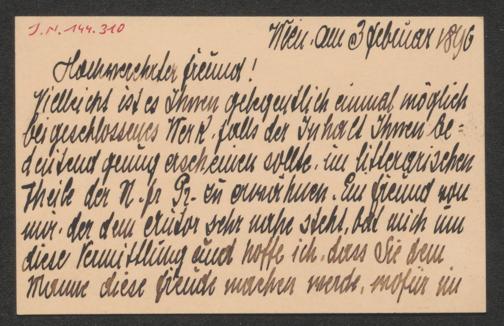 J.N. 144.310
Wien, am 3 Februar 1896
Hochverehrter Freund!
Vielleicht ist es Ihnen gelegentlich einmal möglich
beigeschlossenes Werk, falls der Inhalt Ihnen be-
deutend genug erscheinen sollte, im litterarischen
Theile der N. fr Pr. zu erwähnen. Ein Freund von
mir, der dem Autor sehr nahe steht, bat mich um
diese Vermittlung und hoffe ich, dass Sie dem
Manne diese Freude machen werde, wofür im